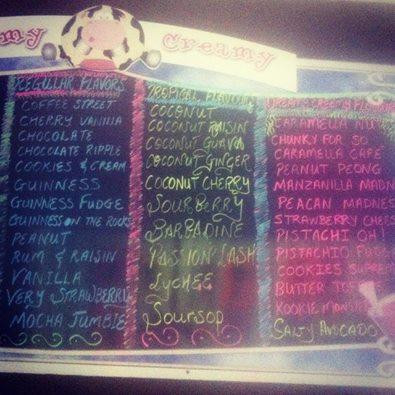 my
creamy
REGULAR FLAVORS
COFFEE STREET
CHERRY VANILLA
CHOCOLATE
CHOCOLATE RIPPLE
COOKIES & CREAM
GUINNESS
GUINNESS FUDGE
GUINNESS ON THE ROCKS
PEANUT
RUM & RAISIN
VANILLA
VERY STRAWBERRY
MOCHA JUMBIE
TROPICAL FLAVOURS
COCONUT
COCONUT RAISIN
COCONUT GUAVA
COCONUT GINGER
COCONUT CHERRY
SOURBERRY
BARBADINE
PASSION LASH
LYCHEE
SOURSOP
CREAMY
CARAMELLA NU
CHUNKY FOR SO
CARAMELLA CAFE
PEANUT PEONG
MANZANILLA MADN
PEACAN MADNES
STRAWBERRY CHEES
PISTACHI OH!
PISTACHIO FUDGE
COOKIES SUPREM
BUTTER
KOOKIE MONSTER
SALTY AVOCADO